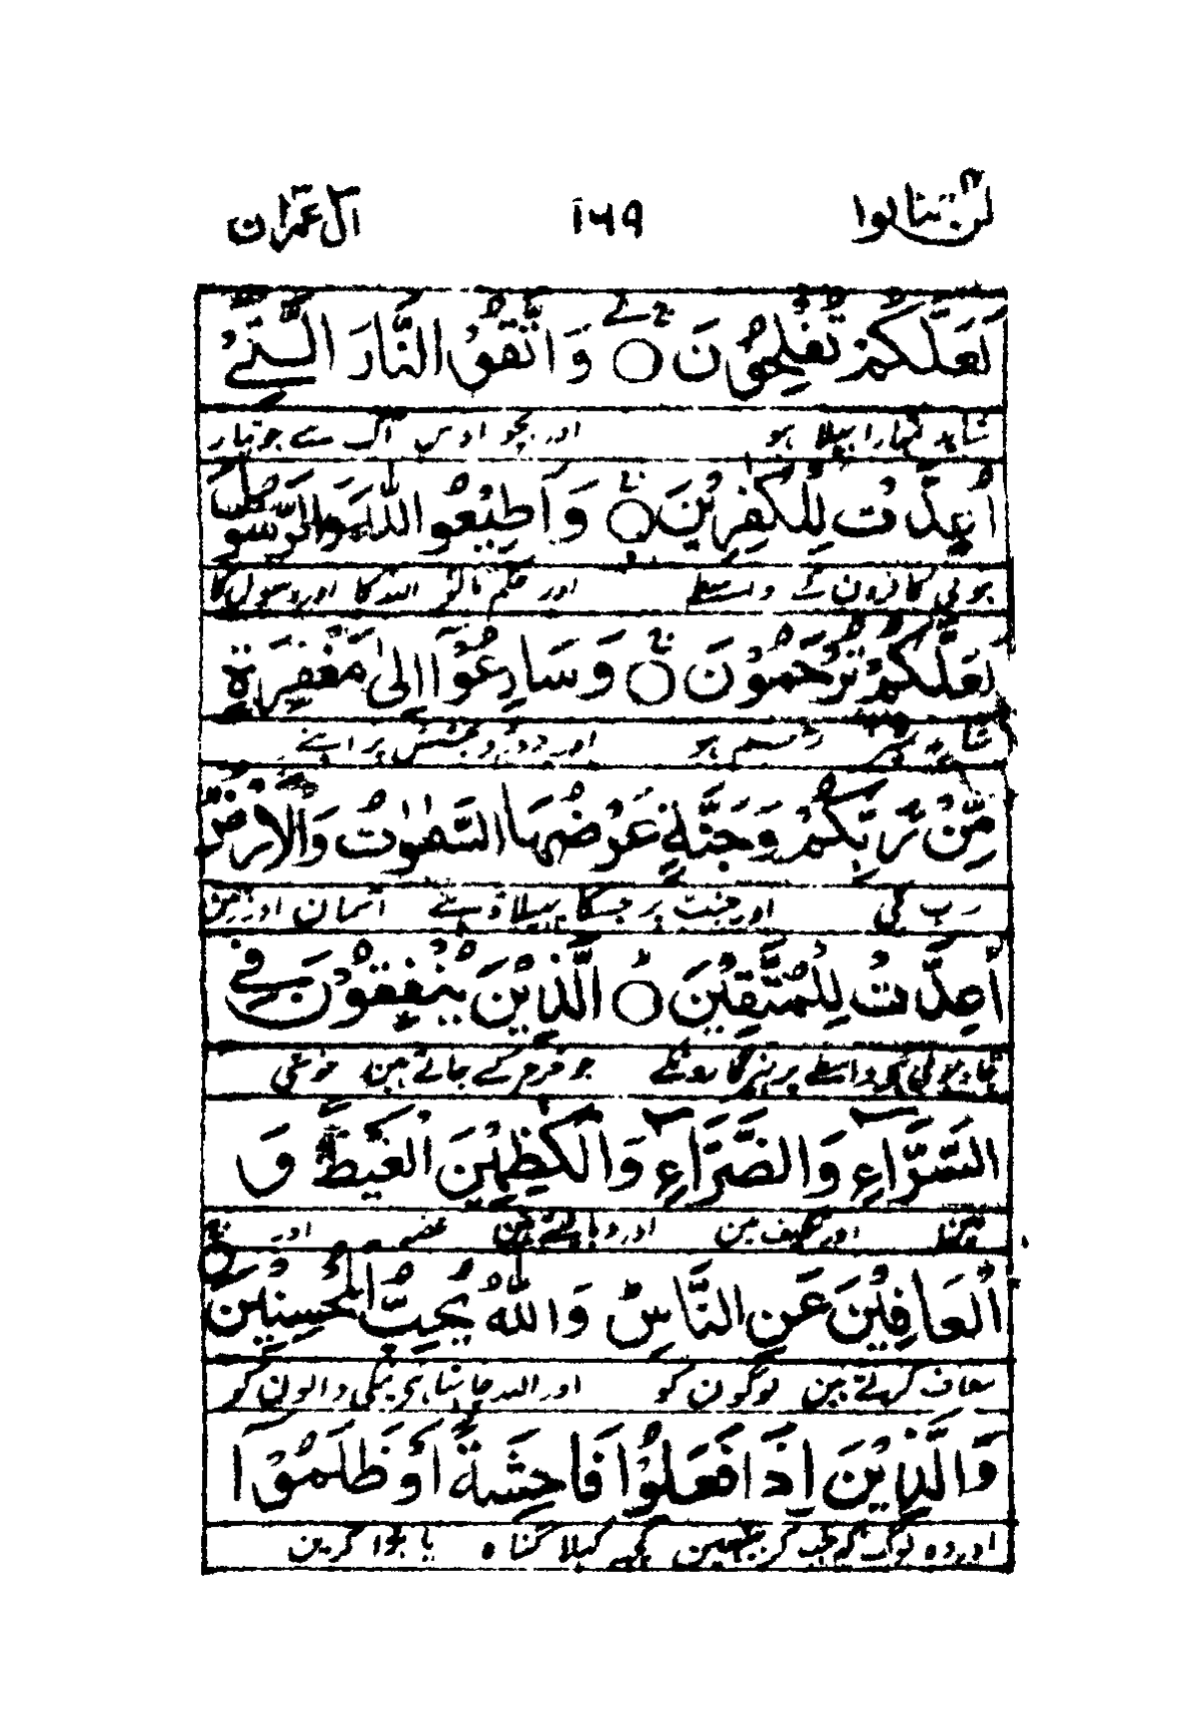 لن تنالوا ١٦٩ آل عمران
لَعَلَّكُمْ تُفْلِحُوْنَ ۝ وَاتَّقُوا النَّارَ الَّتِيْ
شاید تمہارا بہلا ہو اور بچو اوس آگ سے جو تیار
اُعِدَّتْ لِلْكٰفِرِيْنَ ۝ وَاَطِيْعُوا اللّٰهَ وَالرَّسُوْلَ
ہوئی کافرون کے واسطے اور حکم مانو اللہ کا اور رسول کا
لَعَلَّكُمْ تُرْحَمُوْنَ ۝ وَسَارِعُوْٓا اِلٰى مَغْفِرَةٍ
شاید تمپر رحم ہو اور دوڑو بخشش پر اپنے
مِّنْ رَّبِّكُمْ وَجَنَّةٍ عَرْضُهَا السَّمٰوٰتُ وَالْاَرْضُ
رب کی اور جنت پر جسکا پہیلاؤ ہے آسمان اور زمین
اُعِدَّتْ لِلْمُتَّقِيْنَ ۝ الَّذِيْنَ يُنْفِقُوْنَ فِي
ہوئی ہے واسطے پرہیزگارونکے جو خرچ کئے جاتے ہین خوشی
السَّرَّآءِ وَالضَّرَّآءِ وَالْكٰظِمِيْنَ الْغَيْظَ وَ
اور تکلیف مین اور دبا لیتے ہین غصہ اور
الْعَافِيْنَ عَنِ النَّاسِ وَاللّٰهُ يُحِبُّ الْمُحْسِنِيْنَ
معاف کرتے ہین لوگون کو اور اللہ چاہتا ہی نیکی والون کو
وَالَّذِيْنَ اِذَا فَعَلُوْا فَاحِشَةً اَوْ ظَلَمُوْٓا
اور وہ لوگ کہ جب کر بیٹھین کچھ کہلا گناہ یا بُرا کرین